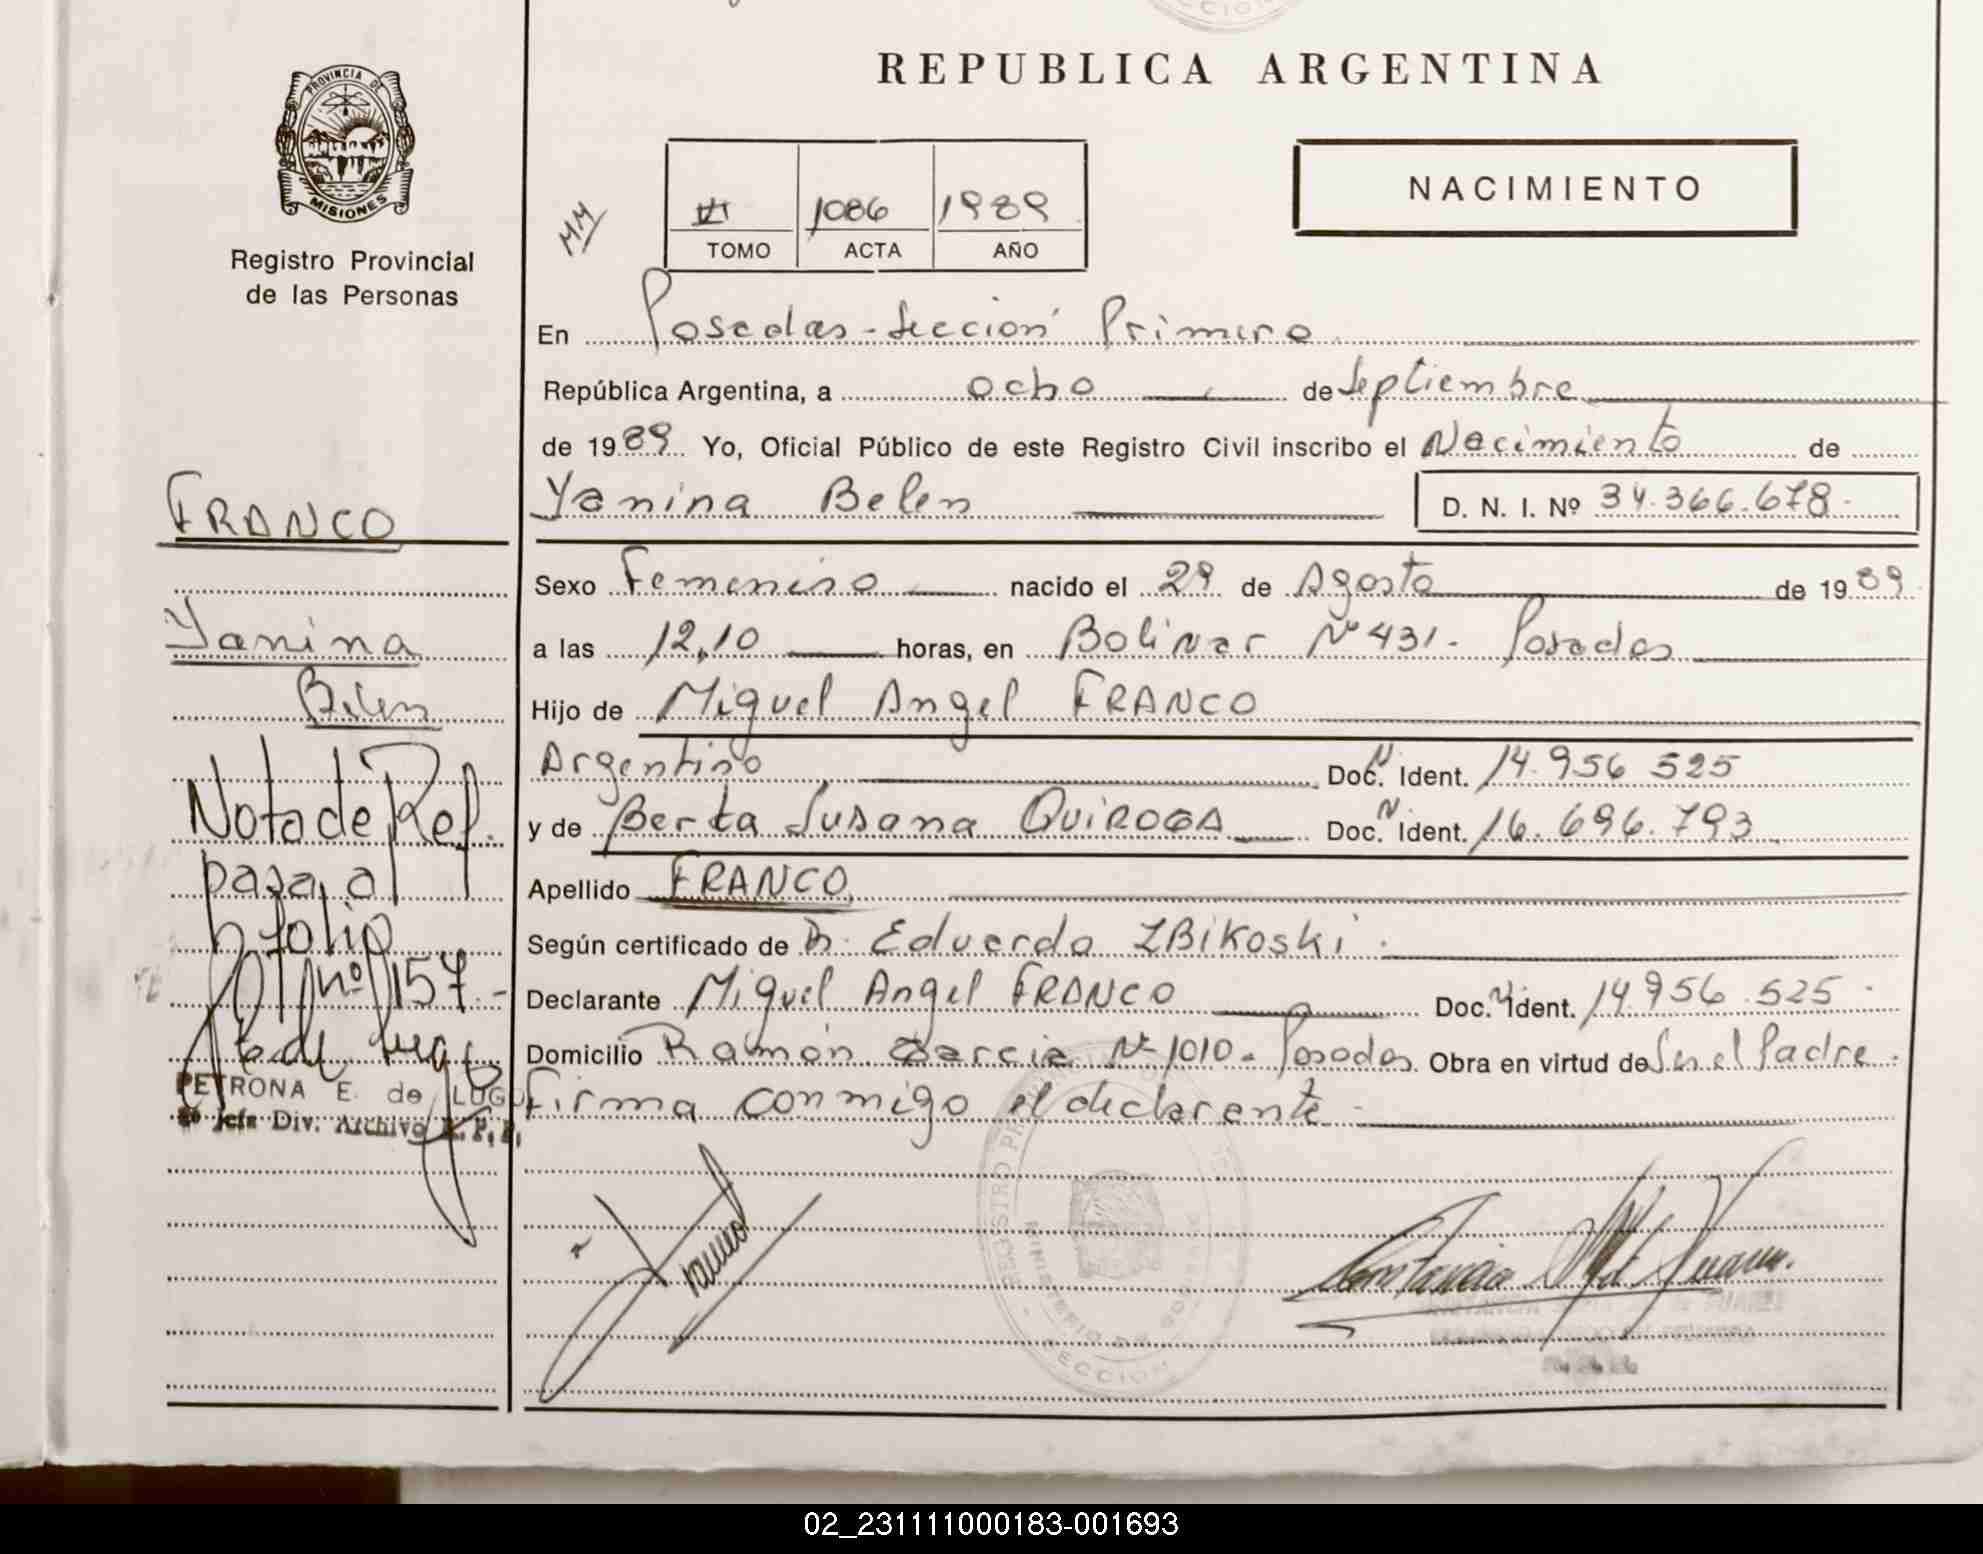 REPUBLICA ARGENTINA
PROVINCIA DE
MISIONES
Registro Provincial
de las Personas
NACIMIENTO
MM
VI 1086 1989
TOMO ACTA AÑO
En Posadas - Sección Primera
República Argentina, a ocho de Septiembre
de 1989 Yo, Oficial Público de este Registro Civil inscribo el Nacimiento de
Yanina Belen D. N. I. Nº 34.366.678
Sexo Femenino nacido el 29 de Agosto de 1989
a las 12,10 horas, en Bolivar Nº 431 - Posadas
Hijo de Miguel Angel FRANCO
Argentino Doc. Ident. 14.956.525
y de Berta Susana QUIROGA Doc. Ident. 16.696.793
Apellido FRANCO
Según certificado de Dr. Eduardo ZBIKOSKI.
Declarante Miguel Angel FRANCO Doc. Ident. 14.956.525
Domicilio Ramón Garcia Nº 1010 - Posadas Obra en virtud de Ser el Padre.
Firma conmigo el declarante -
FRANCO
Yanina
Belen
Nota de Ref.
pasa al
folio
nº 157.-
PETRONA E. de LUGO
Jefa Div. Archivo R. P. P.
REGISTRO
MINISTERIO DE GOBIERNO
SECCION
02_231111000183-001693